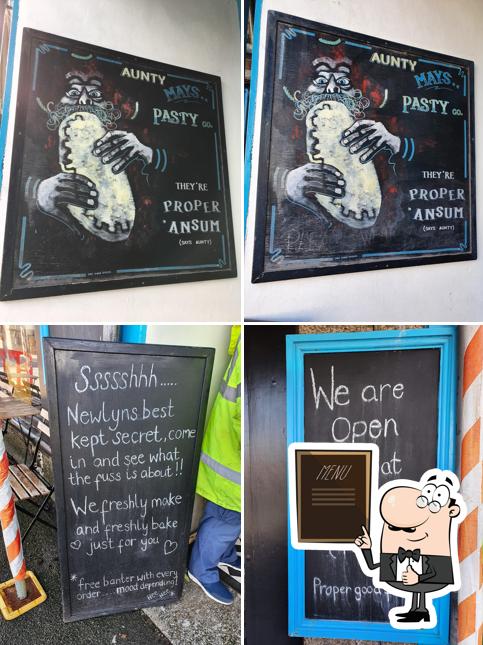 AUNTY
MAYS..
PASTY co.
THEY'RE
PROPER
'ANSUM
(SAYS AUNTY)
AUNTY
MAYS..
PASTY co.
THEY'RE
PROPER
'ANSUM
(SAYS AUNTY)
Ssssshhh.....
Newlyns best
kept secret, come
in and see what
the fuss is about!!
We freshly make
and freshly bake
just for you
*free banter with every
order.... mood depending!
We are
Open
at
MENU
Proper good